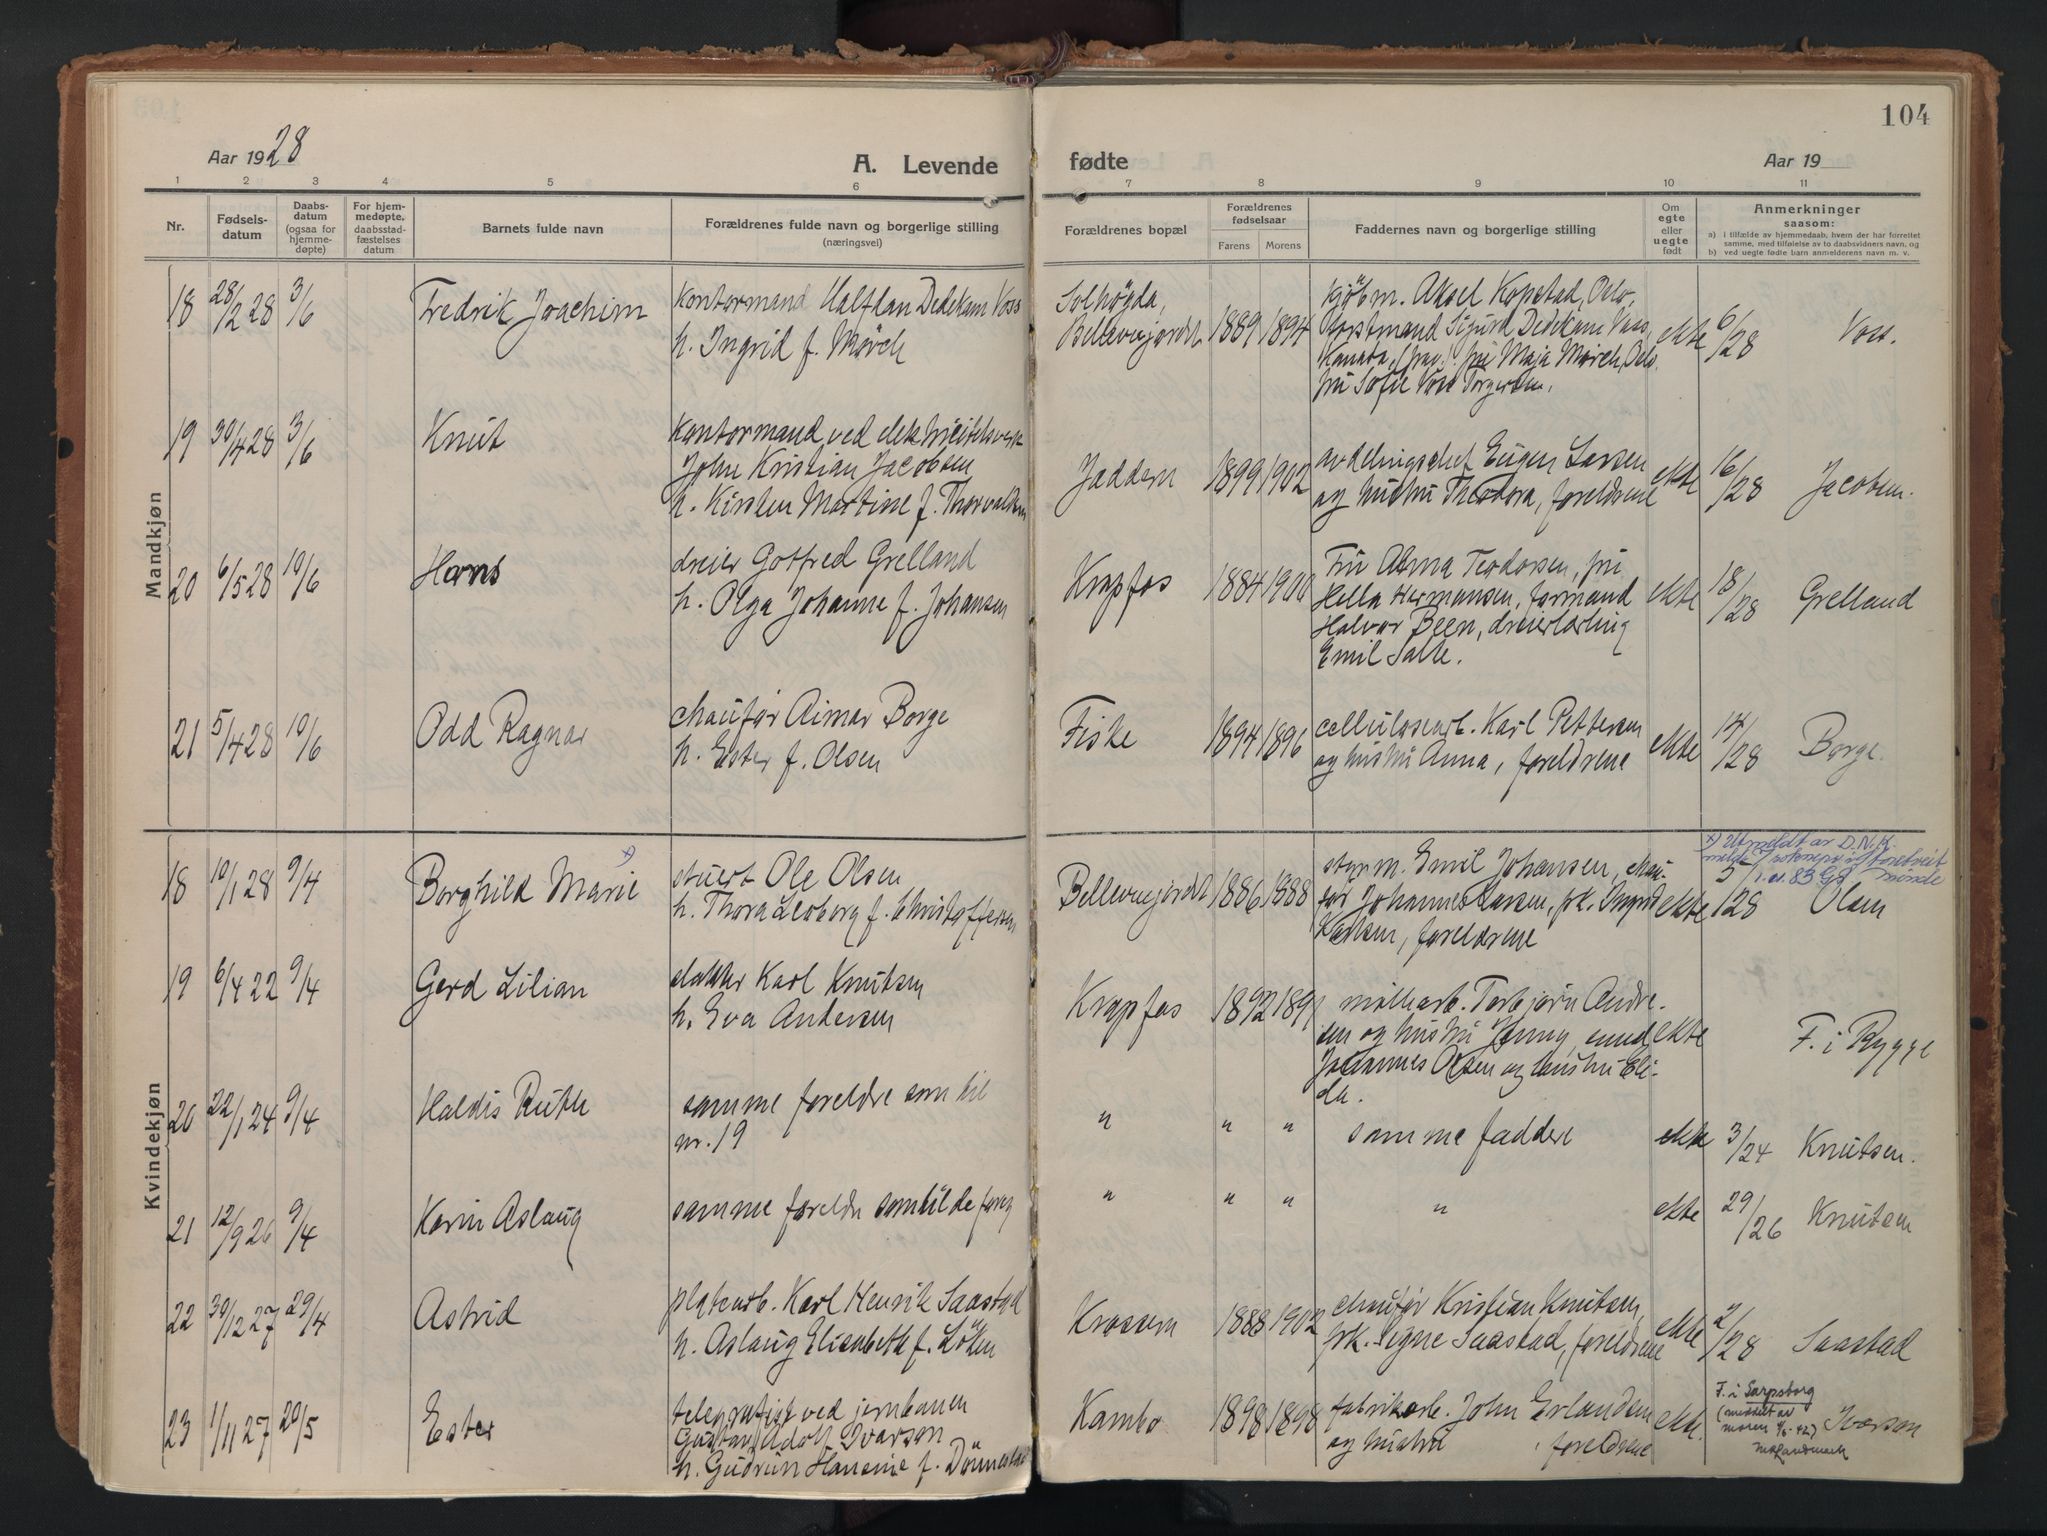 104
Aar 1928
A. Levende
fødte
Aar 19
1 2 3 4 5 6 7 8 9 10 11
Nr.
Fødsels-
datum
Daabs-
datum
(ogsaa for
hjemme-
døpte)
For hjem-
medøpte,
daabsstad-
fæstelses
datum
Barnets fulde navn
Forældrenes fulde navn og borgerlige stilling
(næringsvei)
Forældrenes bopæl
Forældrenes
fødselsaar
Farens Morens
Faddernes navn og borgerlige stilling
Om
egte
eller
uegte
født
Anmerkninger
saasom:
a) i tilfælde av hjemmedaab, hvem der har forrettet
samme, med tilføielse av to daabsvidners navn, og
b) ved uegte fødte barn anmelderens navn m. v.
Mandkjøn
18 28/2 28 3/6 Fredrik Joachim
kontormand Halfdan Dedekam Voss
h. Ingrid f. Mörch
Solhögda,
Bellevuejordet
1889 1894
kjöbm. Aksel Kopstad, Oslo,
Forstmand Sigurd Dedekam Voss,
Kanada, (frav.) fru Maja Mörch, Oslo.
fru Sofie Voss Torgersen.
ekte 6/28 Voss.
19 30/4 28 3/6 Knut
kontormand ved elektricitetsverk
John Kristian Jacobsen
h. Kirsten Martine f. Thorvaldsen
Jaddern 1899 1902
avdelingschef Eugen Larsen
og hustru Theodora, foreldrene
ekte 16/28 Jacobsen.
20 6/5 28 10/6 Hans
dreier Gotfred Grelland
h. Olga Johanne f. Johansen
Krapfos 1884 1900
Fru Anna Teodorsen, fru
Hella Hermansen, formand
Halvor Been, dreierlærling
Emil Salte.
ekte 18/28 Grelland
21 5/4 28 10/6 Odd Ragnar
chaufør Aimar Borge
h. Ester f. Olsen
Fiske 1894 1896
cellulosearb. Karl Pettersen
og hustru Anna, foreldrene
ekte 14/28 Borge.
Kvindekjøn
18 10/1 28 9/4 Borghild Marie x)
stuert Ole Olsen
h. Thora Leoborg f. Christoffersen
Bellevuejordet 1886 1888
styrm. Emil Johansen, chau-
før Johannes Larsen, frk. Ingrid
Karlsen, foreldrene
ekte 5/128 Olsen
x) Utmeldt av D.N.K.
19 6/4 22 9/4 Gerd Lilian
slakter Karl Knutsen
h. Eva Andersen
Krapfos 1892 1891
møllearb. Torbjørn Andre-
sen og hustru Jenny, smed
Johannes Olsen og hustru Eli-
da.
ekte F. i Rygge
20 22/1 24 9/4 Haldis Ruth
samme foreldre som til
nr. 19
" " " samme faddere ekte 3/24 Knutsen.
21 12/9 26 9/4 Karin Aslaug
samme foreldre som til de foreg
" " " " ekte 29/26 Knutsen
22 30/12 27 29/4 Astrid
platearb. Karl Henrik Saastad
h. Aslaug Elisabeth f. Löken
Krossern 1888 1902
chaufør Kristian Knutsen,
frk. Signe Saastad, foreldrene
ekte 2/28 Saastad
23 1/11 27 20/5 Ester
telegrafist ved jernbanen
Gustav Adolf Ivarson
h. Gudrun Hansine f. Dönnestad
Kambo 1898 1898
fabrikarb. John Erlandsen
og hustru , foreldrene
ekte.
F. i Sarpsborg
(meddelt av
moren 4/6-42)
Ivarson